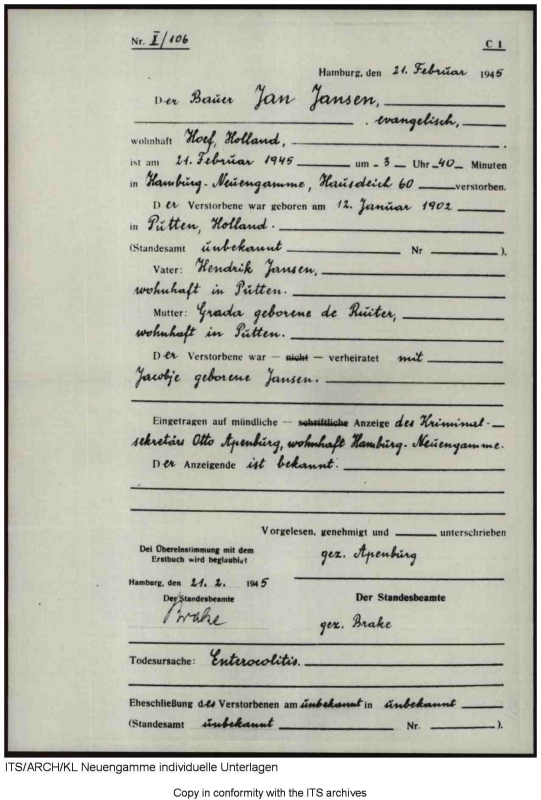 Nr. I/106 C 1
Hamburg, den 21. Februar 1945
Der Bauer Jan Jansen,
, evangelisch,
wohnhaft Hoef, Holland, .
ist am 21. Februar 1945 um 3 Uhr 40 Minuten
in Hamburg-Neuengamme, Hausdeich 60 verstorben.
Der Verstorbene war geboren am 12. Januar 1902
in Putten, Holland.
(Standesamt unbekannt Nr ).
Vater: Hendrik Jansen,
wohnhaft in Putten.
Mutter: Grada geborene de Ruiter,
wohnhaft in Putten.
Der Verstorbene war — nicht — verheiratet mit
Jacobje geborene Jansen.
Eingetragen auf mündliche — schriftliche Anzeige des Kriminal-
sekretärs Otto Apenburg, wohnhaft Hamburg-Neuengamme.
Der Anzeigende ist bekannt.
Vorgelesen, genehmigt und unterschrieben
Dei Übereinstimmung mit dem
Erstbuch wird beglaubigt
gez. Apenburg
Hamburg, den 21. 2. 1945
Der Standesbeamte Der Standesbeamte
Brake
gez. Brake
Todesursache: Enterocolitis.
Eheschließung des Verstorbenen am unbekannt in unbekannt
(Standesamt unbekannt Nr. ).
ITS/ARCH/KL Neuengamme individuelle Unterlagen
Copy in conformity with the ITS archives